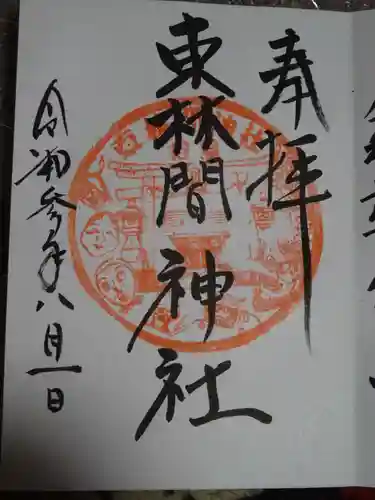 奉拝
東林間神社
令和参年八月一日